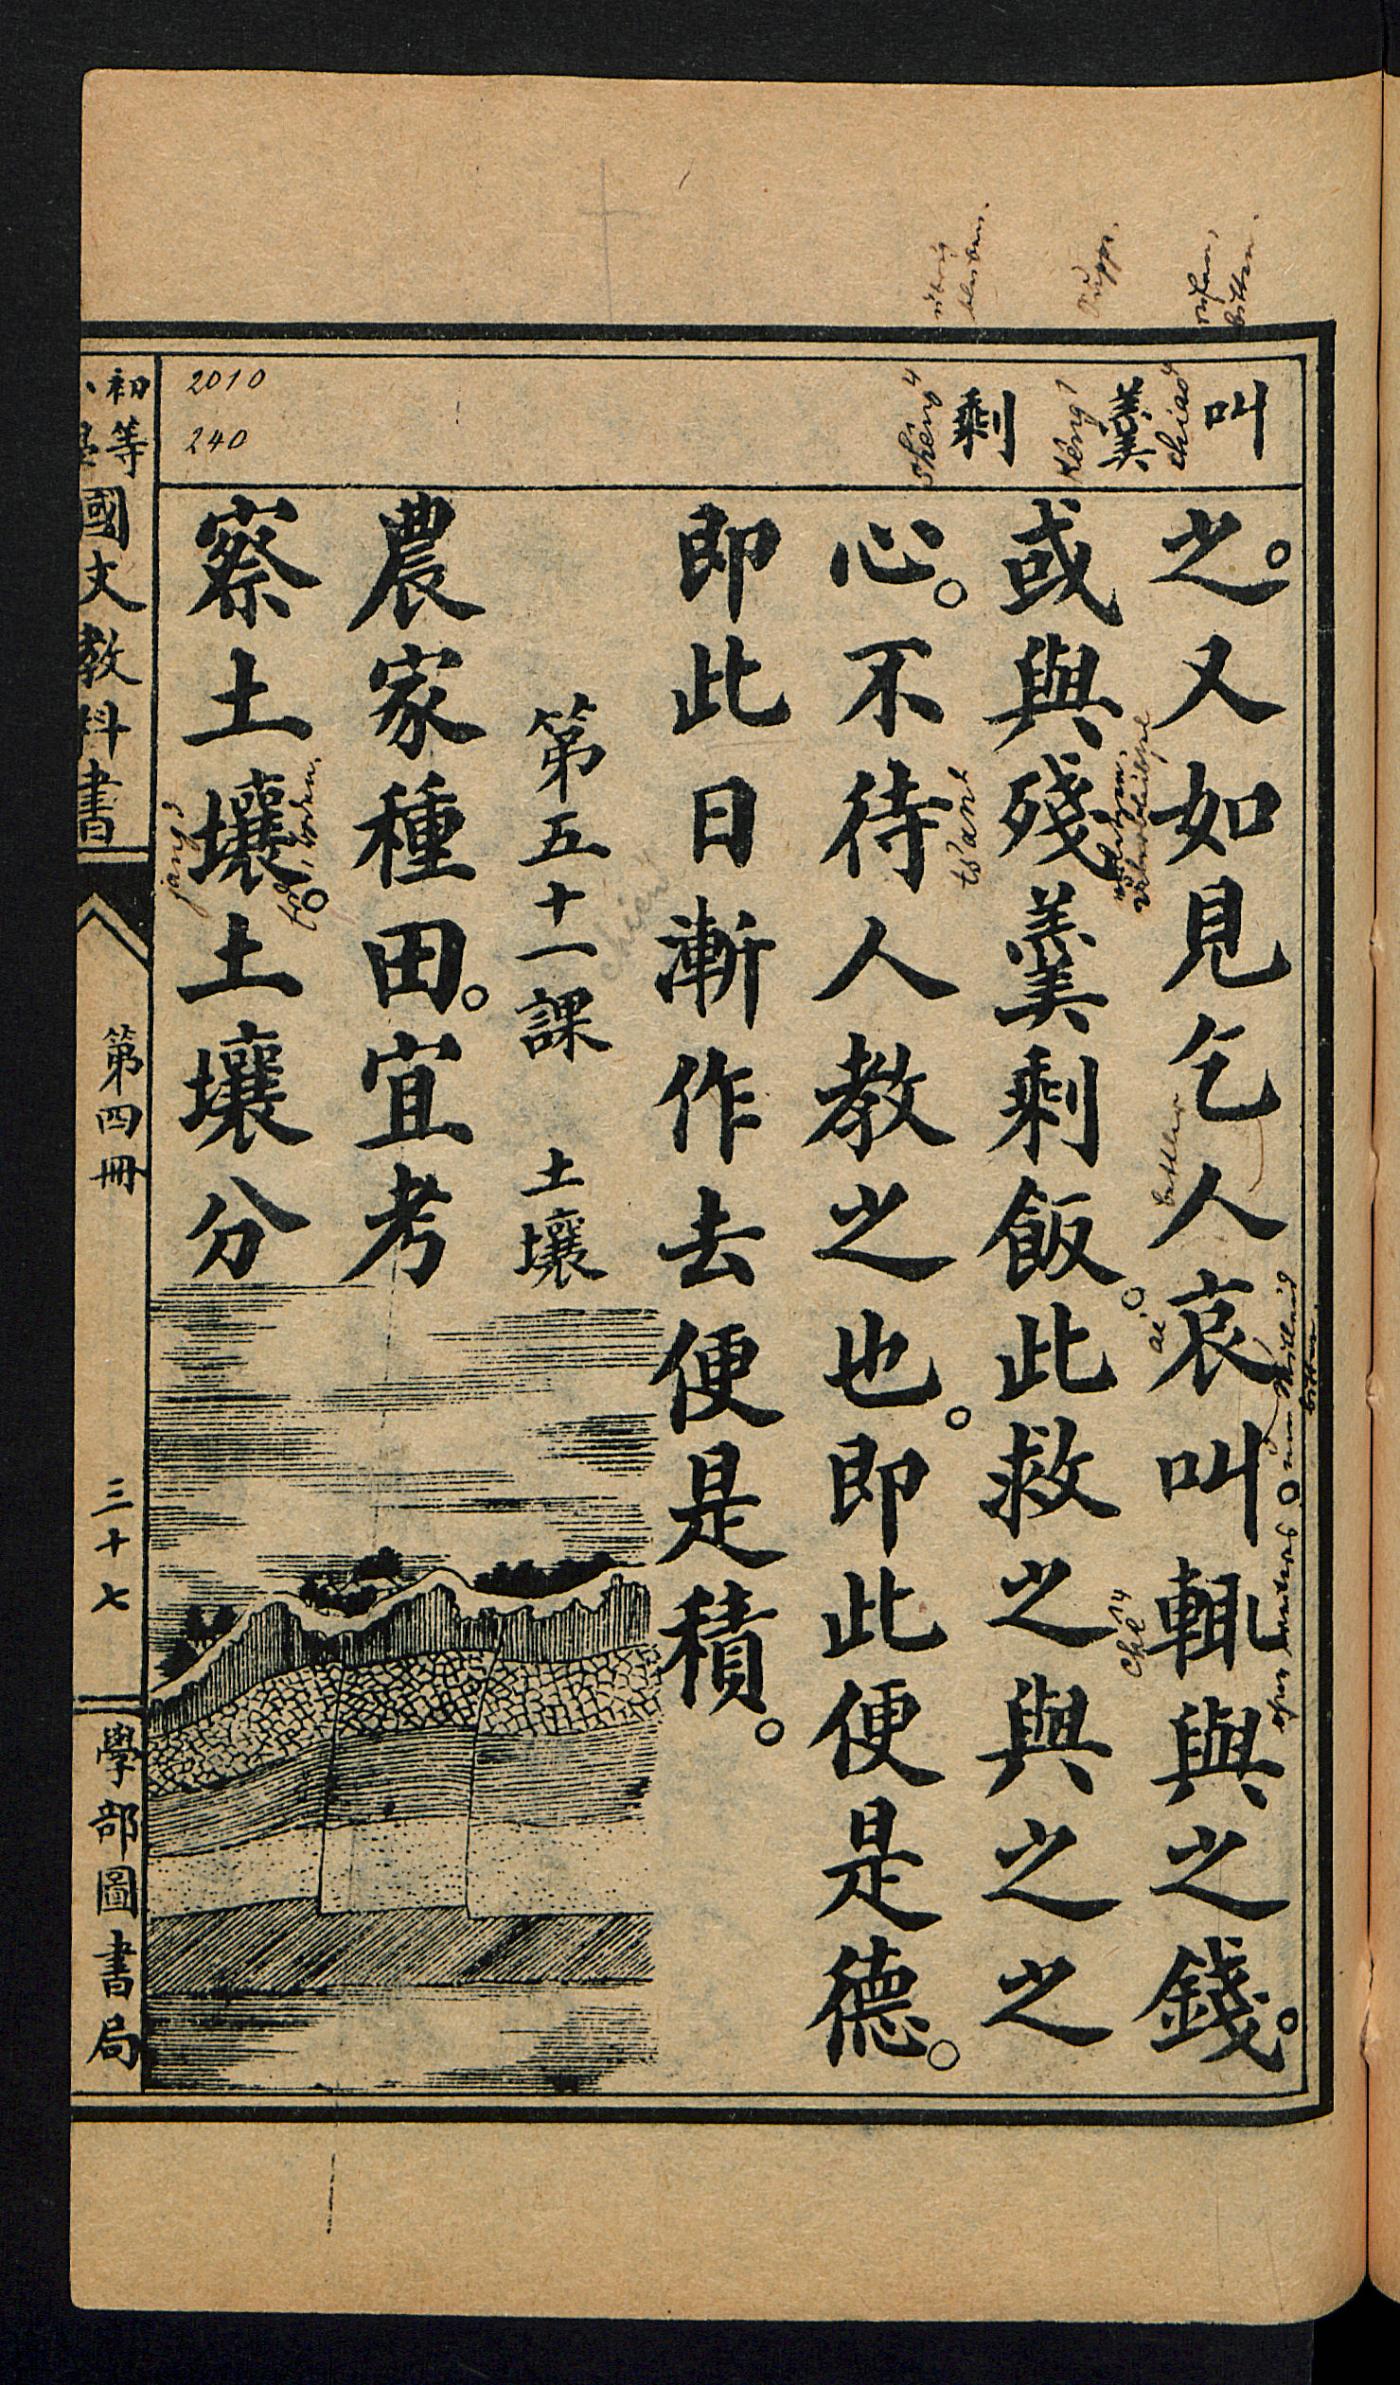 叫 羹 剩
chiao4
kêng1
shêng4
Suppe.
übrig
bleiben.
rufen,
bitten.
2010
240
之。又如見乞人哀叫。輒與之錢。
或與殘羹剩飯。此救之與之之
心。不待人教之也。即此便是德。
即此日漸作去便是積。
第五十一課 土壤
農家種田。宜考
察土壤。土壤分
ts'an2
ai1
chê14
chien4
jang3
初等小學國文教科書
第四冊
三十七
學部圖書局